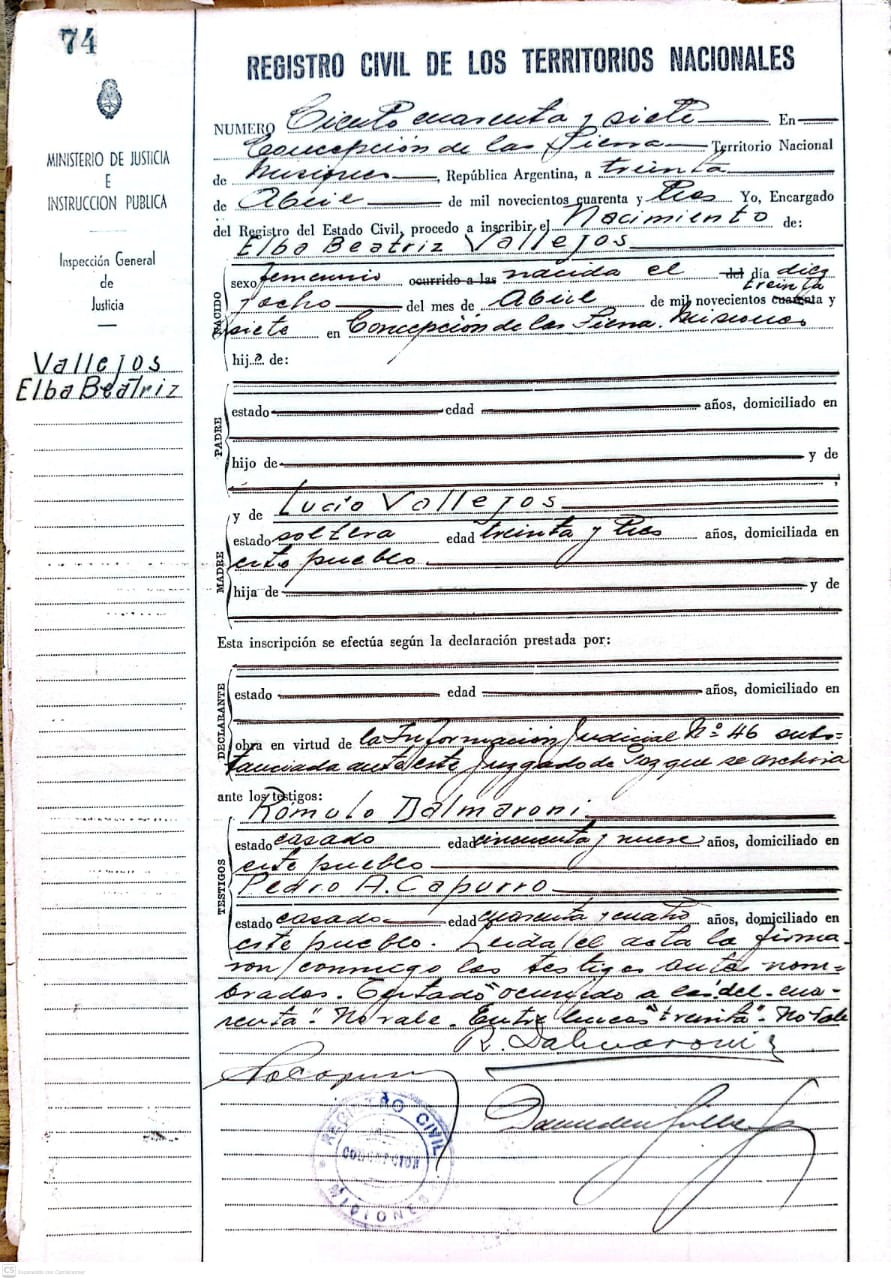 74
MINISTERIO DE JUSTICIA
E
INSTRUCCION PUBLICA
Inspección General
de
Justicia
Vallejos
Elba Beatriz
REGISTRO CIVIL DE LOS TERRITORIOS NACIONALES
NUMERO Ciento cuarenta y siete En
Concepción de la Sierra Territorio Nacional
de Misiones, República Argentina, a treinta
de Abril de mil novecientos cuarenta y tres Yo, Encargado
del Registro del Estado Civil, procedo a inscribir el Nacimiento de:
Elba Beatriz Vallejos
NACIDO
sexo femenino ocurrido a las nacida el del día diez
treinta
y ocho del mes de Abril de mil novecientos cuarenta y
siete en Concepción de la Sierra. Misiones
hij.a de:
PADRE
estado edad años, domiciliado en
hijo de y de
MADRE
y de Lucio Vallejos
estado soltera edad treinta y tres años, domiciliada en
este pueblo
hija de y de
Esta inscripción se efectúa según la declaración prestada por:
DECLARANTE
estado edad años, domiciliado en
obra en virtud de la Información Judicial Nº 46 subs=
tanciada ante este Juzgado de Paz que se archiva
ante los testigos:
TESTIGOS
Rómulo Dalmaroni
estado casado edad cincuenta y nueve años, domiciliado en
este pueblo
Pedro A. Capurro
estado casado edad cuarenta y cuatro años, domiciliado en
este pueblo. Leída el acta la firma-
ron conmigo los testigos antes nom=
brados. Testado "ocurrido a las" del-cua-
renta". No vale. Entre líneas "treinta". No Vale
R. Dalmaroni
REGISTRO CIVIL
CONCEPCION
MISIONES
CS Scanned with CamScanner